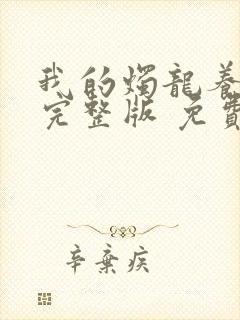 我的燭龍養
完整版 免費
辛棄疾